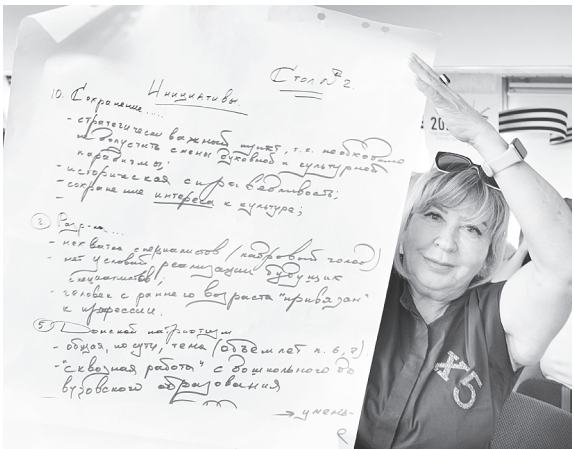 Стол №2.
Инициативы.
10. Сохранение....
- стратегически важный пункт, т.е. необходимо
не допустить смены духовной и культурной
парадигмы;
- историческая справедливость;
- сохранение интереса к культуре;
-
2
- нехватка специалистов (кадровый голод)
- нет условий реализации будущих
специалистов;
- человек с раннего возраста "привязан"
к профессии.
5. Донской патриотизм
- общая, по сути, тема (объемлет п. 6, 7).
- "сквозная работа" с дошкольного до
вузовского образования
→ умень-
20
X5